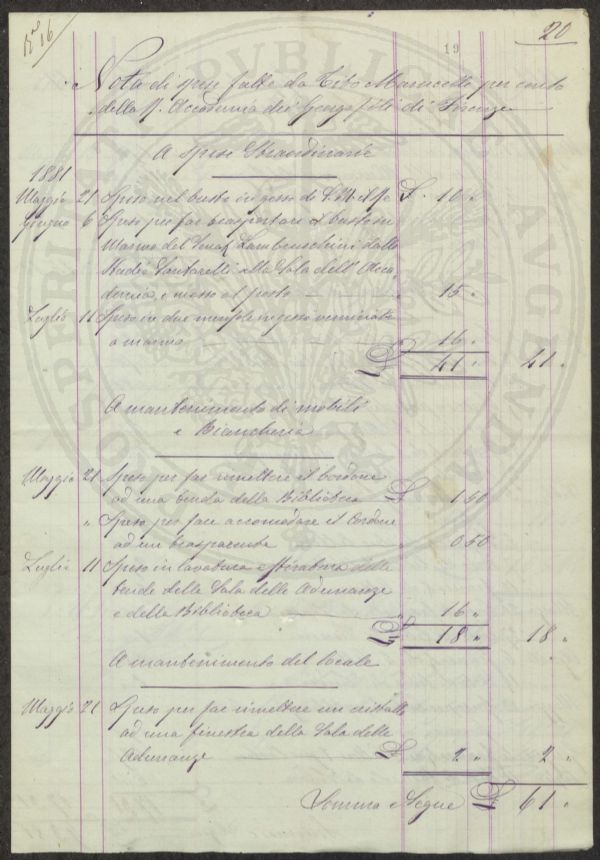 N° 16
19
20
Nota di spese fatte da Tito Marucelli per conto
della R. Accademia dei Georgofili di Firenze
A spese Straordinarie
1881
Maggio 21 Spese nel busto in gesso di £ 10 "
Giugno 6 Speso per far trasportare il busto in
Marmo del Senat. Lambruschini dallo
Studio Santarelli alla Sala dell' Acca-
demia, e messo al posto " 15 "
Luglio 11 Speso in due mensole in gesso verniciate
a marmo " 16 "
£ 41 " 41 "
A mantenimento di mobili
e Biancheria
Maggio 21 Speso per far rimettere il cordone
ad una tenda della Biblioteca £ 1 50
" Speso per fare accomodare il Cordone
ad un trasparente " 0 50
Luglio 11 Speso in lavatura e stiratura delle
tende della Sala delle Adunanze
e della Biblioteca " 16 "
£ 18 " 18 "
A mantenimento del locale
Maggio 21 Speso per far rimettere un cristallo
ad una finestra della Sala delle
Adunanze £ 2 " 2 "
Somma e Segue £ 61 "
PROSPERITATI PUBLICAE AUGENDAE